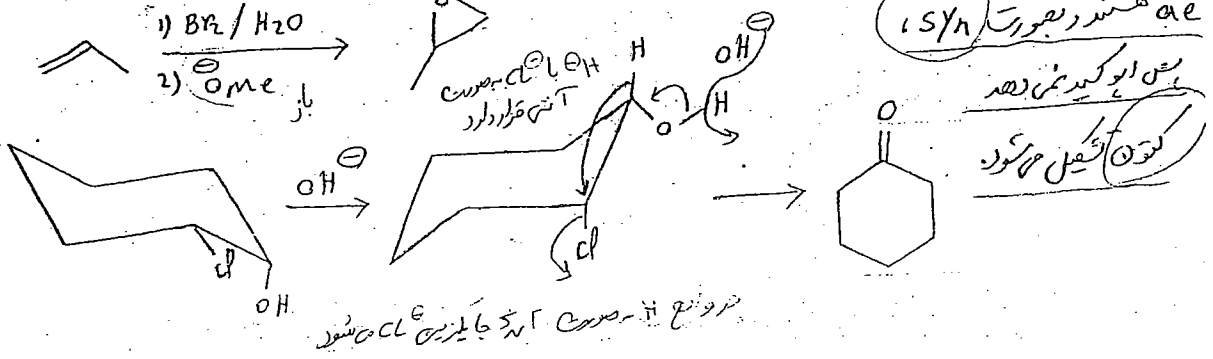 1) Br2 / H2O
2) ⊖OMe باز
O
ae هستند و بصورت (syn)،
پس اپوکسید نمی دهد
کتون تشکیل می شود.
H با Cl⊖ به صورت
آنتی قرار دارد
H
OH⊖
H
O
Cl
OH⊖
O
Cl
OH
در واقع H⊖ به صورت آنتی جایگزین Cl⊖ می شود